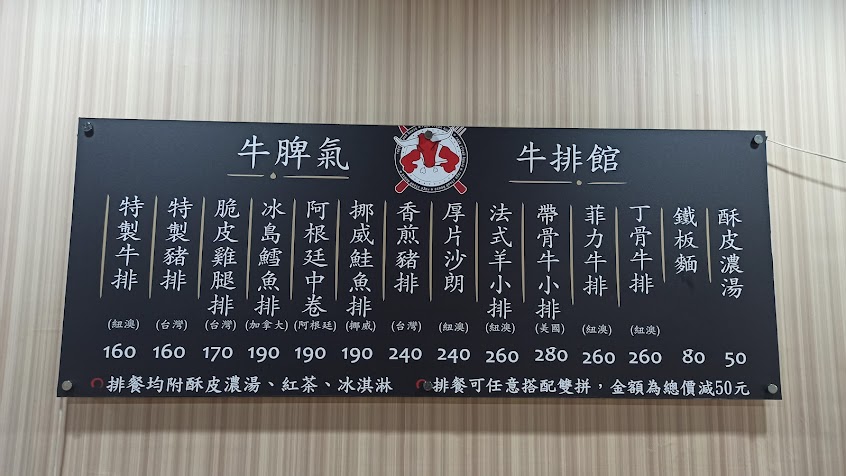 牛脾氣 牛排館
特製牛排 (紐澳) 160
特製豬排 (台灣) 160
脆皮雞腿排 (台灣) 170
冰島鱈魚排 (加拿大) 190
阿根廷中卷 (阿根廷) 190
挪威鮭魚排 (挪威) 190
香煎豬排 (台灣) 240
厚片沙朗 (紐澳) 240
法式羊小排 (紐澳) 260
帶骨牛小排 (美國) 280
菲力牛排 (紐澳) 260
丁骨牛排 (紐澳) 260
鐵板麵 80
酥皮濃湯 50
排餐均附酥皮濃湯、紅茶、冰淇淋
排餐可任意搭配雙拼，金額為總價減50元